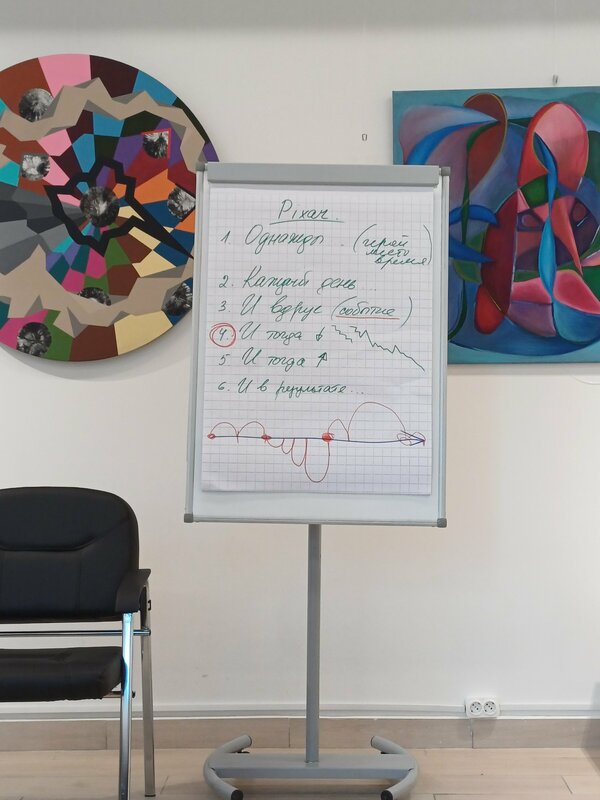 Pixar.
1. Однажды.. (герой
место
время)
2. Каждый день...
3. И вдруг (событие)
4. И тогда ↓
5. И тогда ↑
6. И в результате...